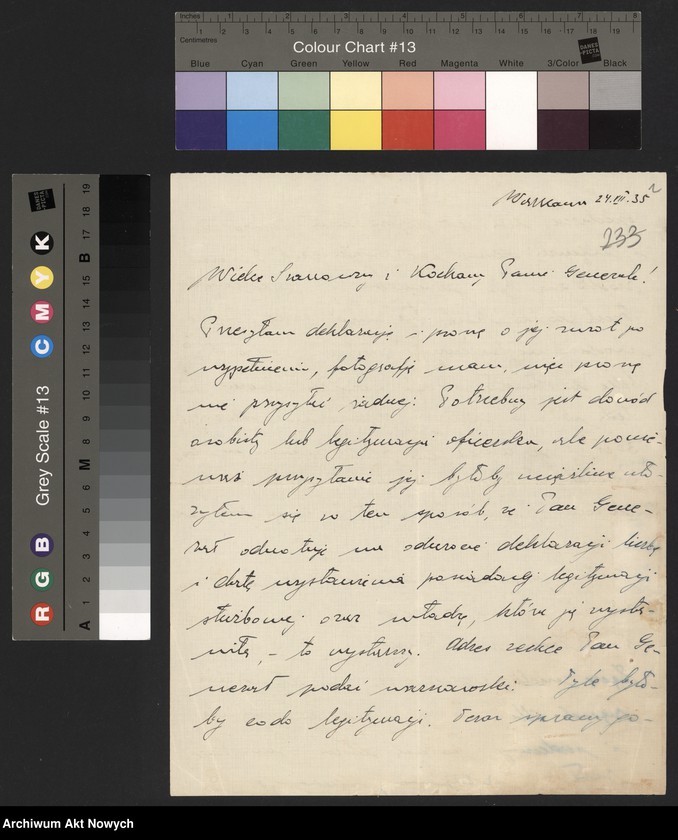 Inches 1 2 3 4 5 6 7 8
Centimetres 1 2 3 4 5 6 7 8 9 10 11 12 13 14 15 16 17 18 19
Colour Chart #13
DANES
PICTA
Blue Cyan Green Yellow Red Magenta White 3/Color Black
Grey Scale #13
R G B C M Y K
A 1 2 3 4 5 6 M 8 9 10 11 12 13 14 15 B 17 18 19
Warszawa 24.III.35
233
Wielce Szanowny i Kochany Panie Generale!
Przesyłam deklarację i proszę o jej zwrot po
wypełnieniu, fotografję mam, więc proszę
nie przysyłać żadnej. Potrzebny jest dowód
osobisty lub legitymacja oficerska, ale ponie-
waż przysyłanie jej byłoby uciążliwe uło-
żyłem się w ten sposób, że Pan Gene-
rał odnotuje na odwrocie deklaracji liczbę
i datę wystawienia posiadanej legitymacji
służbowej oraz władzę, która ją wysta-
wiła, - to wystarczy. Adres zechce Pan Ge-
nerał podać warszawski. Tyle było-
by co do legitymacji. Teraz sprawy po-
Archiwum Akt Nowych